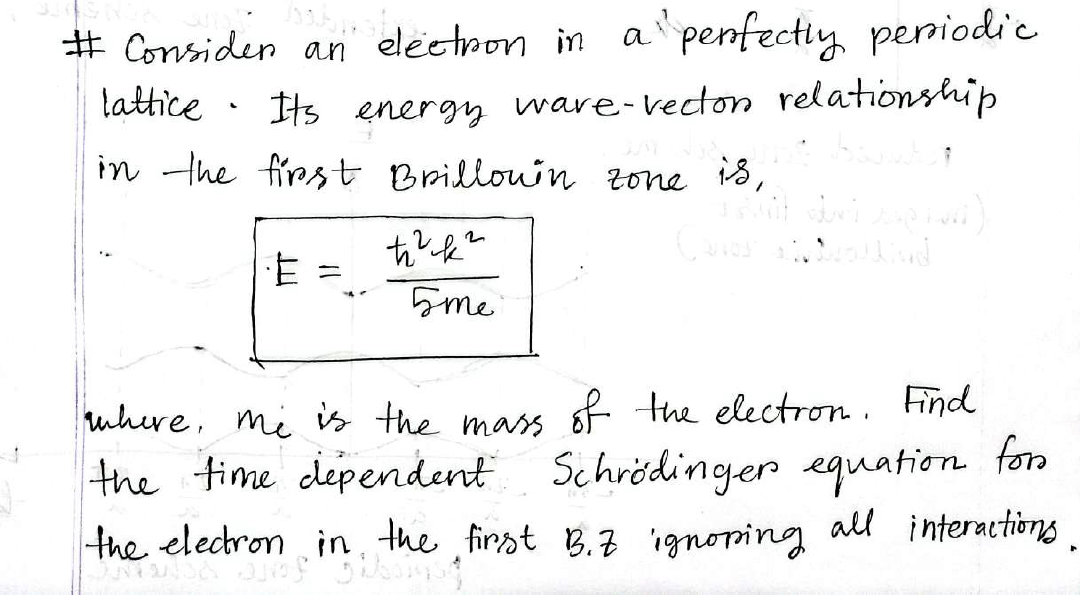 # Consider an electron in a perfectly periodic
lattice. Its energy wave-vector relationship
in the first Brillouin zone is,
E = ħ²k² / 5me
where, me is the mass of the electron. Find
the time dependent Schrödinger equation for
the electron in the first B.Z ignoring all interactions.